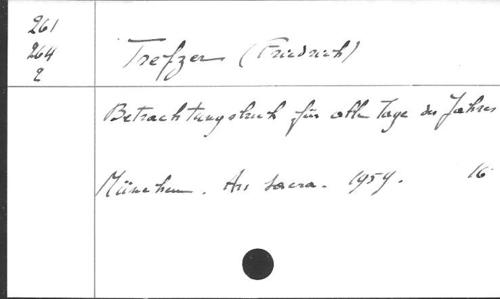 261
264
2
Trefzer (Friedrich)
Betrachtungsbuch für alle Tage des Jahres
München. Ars sacra. 1959. 16